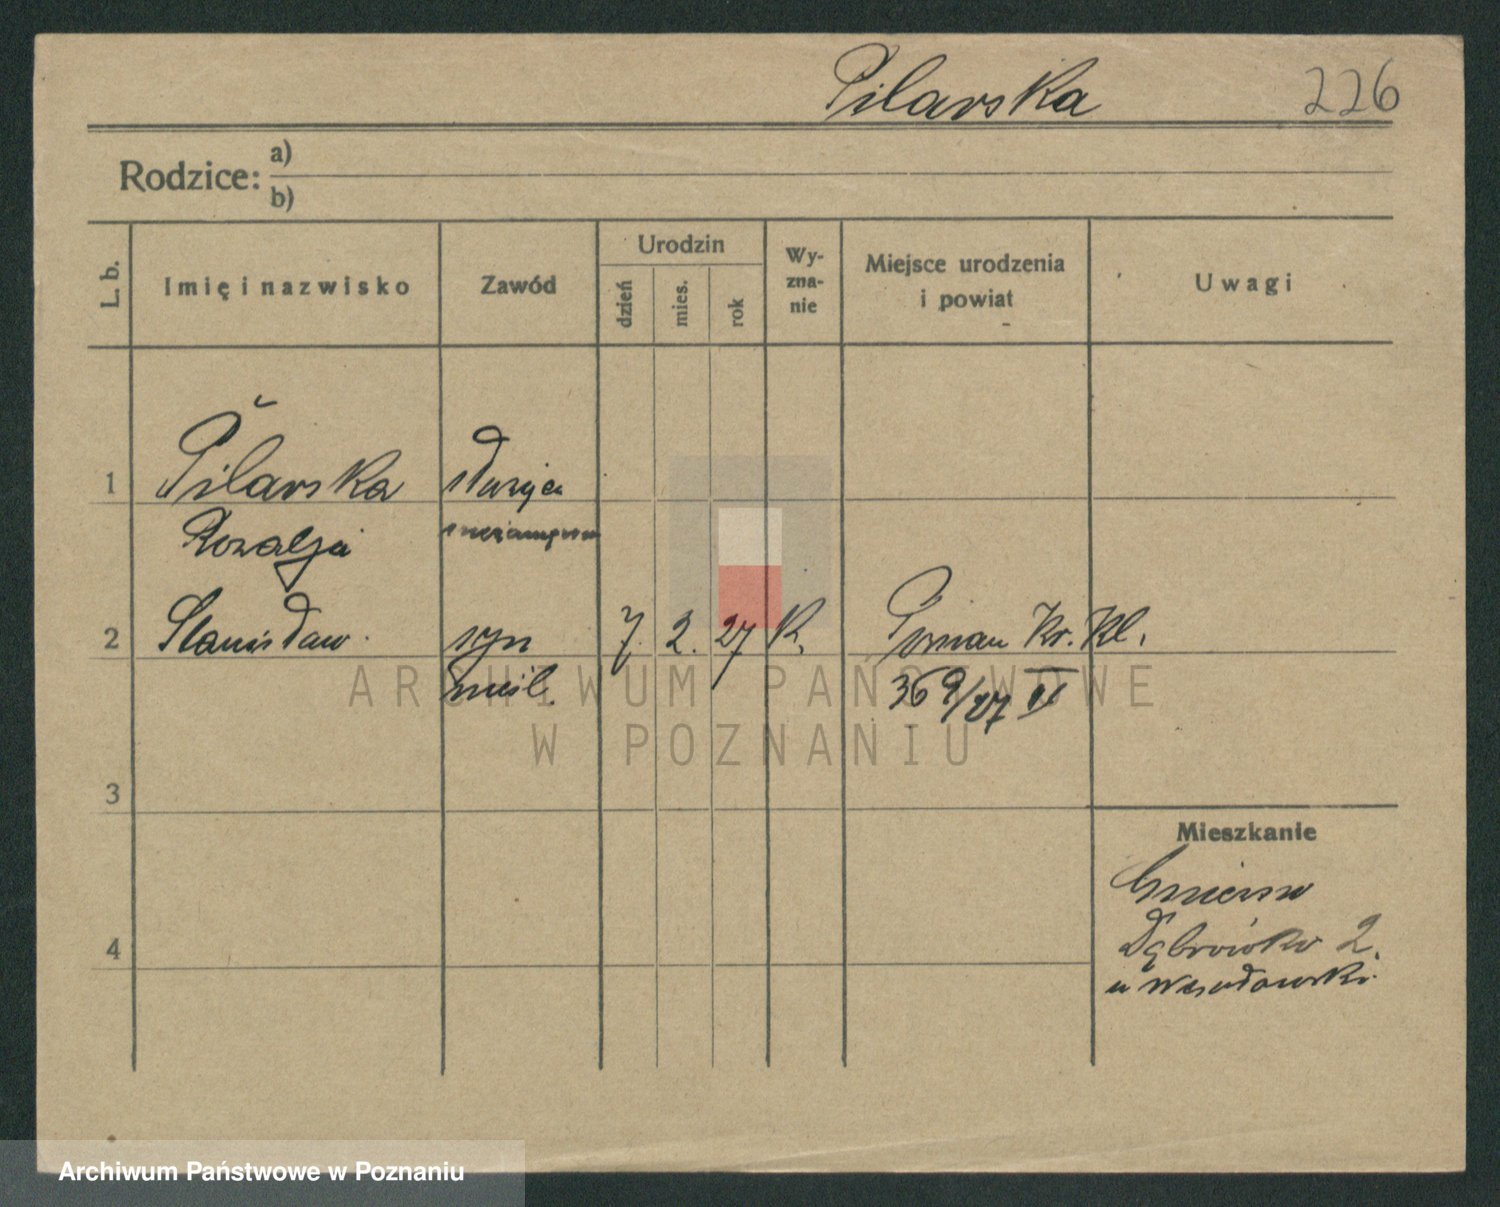 Pilarska 226
Rodzice: a)
b)
L. b.
Imię i nazwisko
Zawód
Urodzin
dzień
mies.
rok
Wy-
zna-
nie
Miejsce urodzenia
i powiat
Uwagi
1 Pilarska służąca
Rozalja niezamężna
2 Stanisław syn 7. 2. 27 K. Poznan Kr. Kl.
nieśl. 369/27 II
ARCHIWUM PAŃSTWOWE
W POZNANIU
3
Mieszkanie
Gniezno
Dąbrówki 2.
4
u
Archiwum Państwowe w Poznaniu